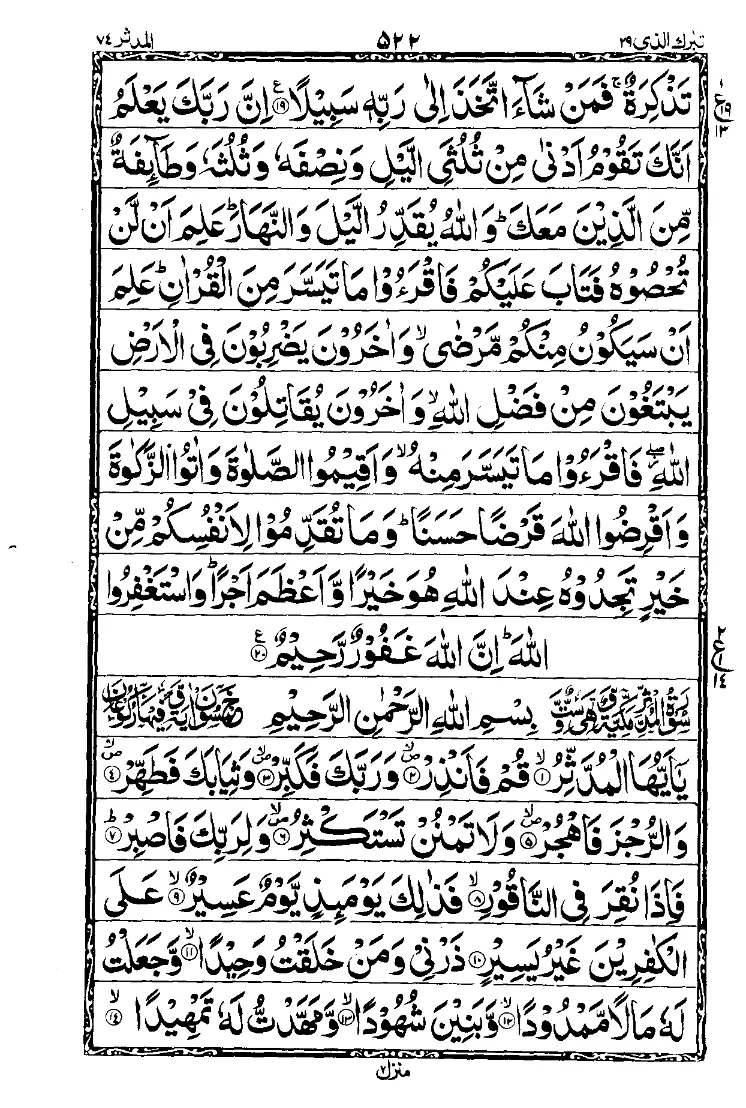 تبٰرك الذی ٢٩ ٥٢٢ المدثر ٧٤
تَذْكِرَةٌ ۚ فَمَنْ شَآءَ اتَّخَذَ اِلٰى رَبِّهٖ سَبِيْلًا ۧ‏﴿١٩﴾ اِنَّ رَبَّكَ يَعْلَمُ
اَنَّكَ تَقُوْمُ اَدْنٰى مِنْ ثُلُثَيِ الَّيْلِ وَنِصْفَهٗ وَثُلُثَهٗ وَطَآئِفَةٌ
مِّنَ الَّذِيْنَ مَعَكَ ؕ وَاللّٰهُ يُقَدِّرُ الَّيْلَ وَالنَّهَارَ ؕ عَلِمَ اَنْ لَّنْ
تُحْصُوْهُ فَتَابَ عَلَيْكُمْ فَاقْرَءُوْا مَا تَيَسَّرَ مِنَ الْقُرْاٰنِ ؕ عَلِمَ
اَنْ سَيَكُوْنُ مِنْكُمْ مَّرْضٰى ۙ وَاٰخَرُوْنَ يَضْرِبُوْنَ فِى الْاَرْضِ
يَبْتَغُوْنَ مِنْ فَضْلِ اللّٰهِ ۙ وَاٰخَرُوْنَ يُقَاتِلُوْنَ فِيْ سَبِيْلِ
اللّٰهِ ۖ فَاقْرَءُوْا مَا تَيَسَّرَ مِنْهُ ۙ وَاَقِيْمُوا الصَّلٰوةَ وَاٰتُوا الزَّكٰوةَ
وَاَقْرِضُوا اللّٰهَ قَرْضًا حَسَنًا ؕ وَمَا تُقَدِّمُوْا لِاَنْفُسِكُمْ مِّنْ
خَيْرٍ تَجِدُوْهُ عِنْدَ اللّٰهِ هُوَ خَيْرًا وَّاَعْظَمَ اَجْرًا ؕ وَاسْتَغْفِرُوا
اللّٰهَ ؕ اِنَّ اللّٰهَ غَفُوْرٌ رَّحِيْمٌ ۧ‏﴿٢٠﴾
بِسْمِ اللّٰهِ الرَّحْمٰنِ الرَّحِيْمِ
يٰۤاَيُّهَا الْمُدَّثِّرُ ۙ‏﴿١﴾ قُمْ فَاَنْذِرْ ۙ‏﴿٢﴾ وَرَبَّكَ فَكَبِّرْ ۙ‏﴿٣﴾ وَثِيَابَكَ فَطَهِّرْ ۙ‏﴿٤﴾
وَالرُّجْزَ فَاهْجُرْ ۙ‏﴿٥﴾ وَلَا تَمْنُنْ تَسْتَكْثِرُ ۙ‏﴿٦﴾ وَلِرَبِّكَ فَاصْبِرْ ؕ‏﴿٧﴾
فَاِذَا نُقِرَ فِى النَّاقُوْرِ ۙ‏﴿٨﴾ فَذٰلِكَ يَوْمَئِذٍ يَّوْمٌ عَسِيْرٌ ۙ‏﴿٩﴾ عَلَى
الْكٰفِرِيْنَ غَيْرُ يَسِيْرٍ ‏﴿١٠﴾ ذَرْنِيْ وَمَنْ خَلَقْتُ وَحِيْدًا ۙ‏﴿١١﴾ وَّجَعَلْتُ
لَهٗ مَالًا مَّمْدُوْدًا ۙ‏﴿١٢﴾ وَّبَنِيْنَ شُهُوْدًا ۙ‏﴿١٣﴾ وَّمَهَّدْتُّ لَهٗ تَمْهِيْدًا ۙ‏﴿١٤﴾
منزل ٧